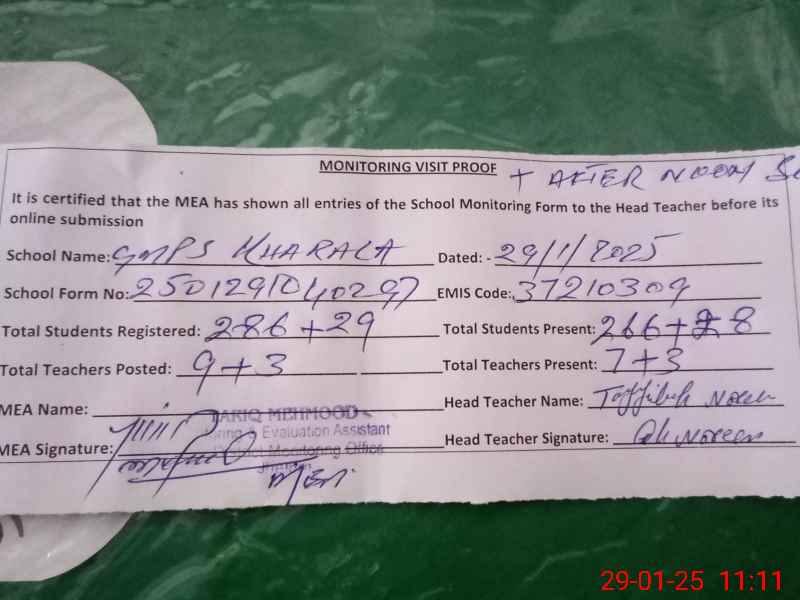 MONITORING VISIT PROOF + AFTER NOON
It is certified that the MEA has shown all entries of the School Monitoring Form to the Head Teacher before its
online submission
School Name: GMPS KHARALA Dated: - 29/1/2025
School Form No: 2501291040297 EMIS Code: 37210309
Total Students Registered: 286+29 Total Students Present: 266+28
Total Teachers Posted: 9+3 Total Teachers Present: 7+3
MEA Name: TARIQ MEHMOOD Head Teacher Name: Noreen
Monitoring & Evaluation Assistant
MEA Signature: District Monitoring Office Head Teacher Signature: Noreen
29-01-25 11:11